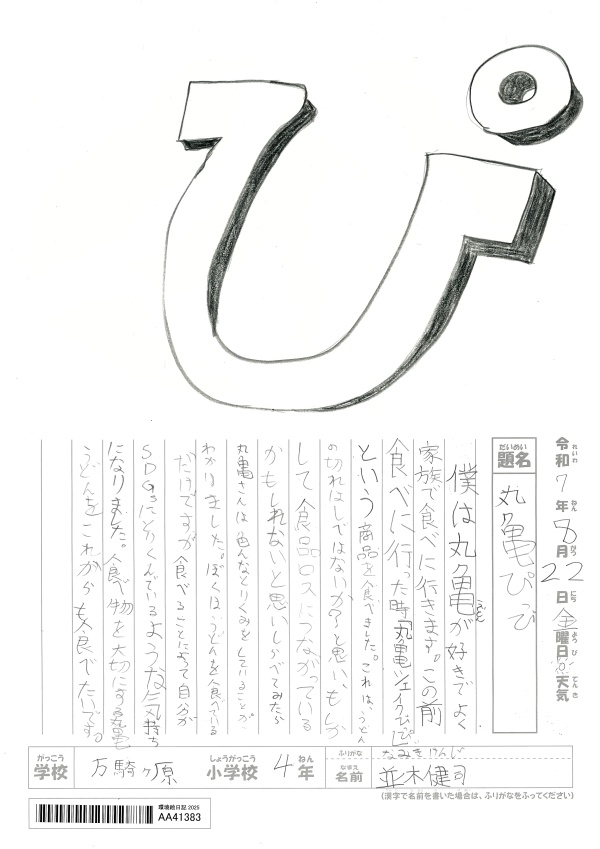 ぴ
令和7年8月22日金曜日 天気
れいわ ねん がつ にち ようび てんき
だいめい
題名
丸亀ぴっぴ
僕は丸亀が好きでよく
うどん
家族で食べに行きます。この前
食べに行った時「丸亀シェイクぴっぴ」
という商品を食べました。これは、うどん
の切れはしではないか?と思い、もしか
して食品ロスにつながっている
かもしれないと思いしらべてみたら
丸亀さんは色んなとりくみをしていることが、
わかりました。ぼくは、うどんを食べている
だけですが食べることによって自分が
SDGsにとりくんでいるような気持ち
になりました。食べ物を大切にする丸亀
うどんをこれからも食べたいです。
がっこう
学校
万騎ヶ原
しょうがっこう
小学校
4
ねん
年
ふりがな
なみき けんじ
なまえ
名前
並木健司
(漢字で名前を書いた場合は、ふりがなをふってください)
環境絵日記 2025
AA41383